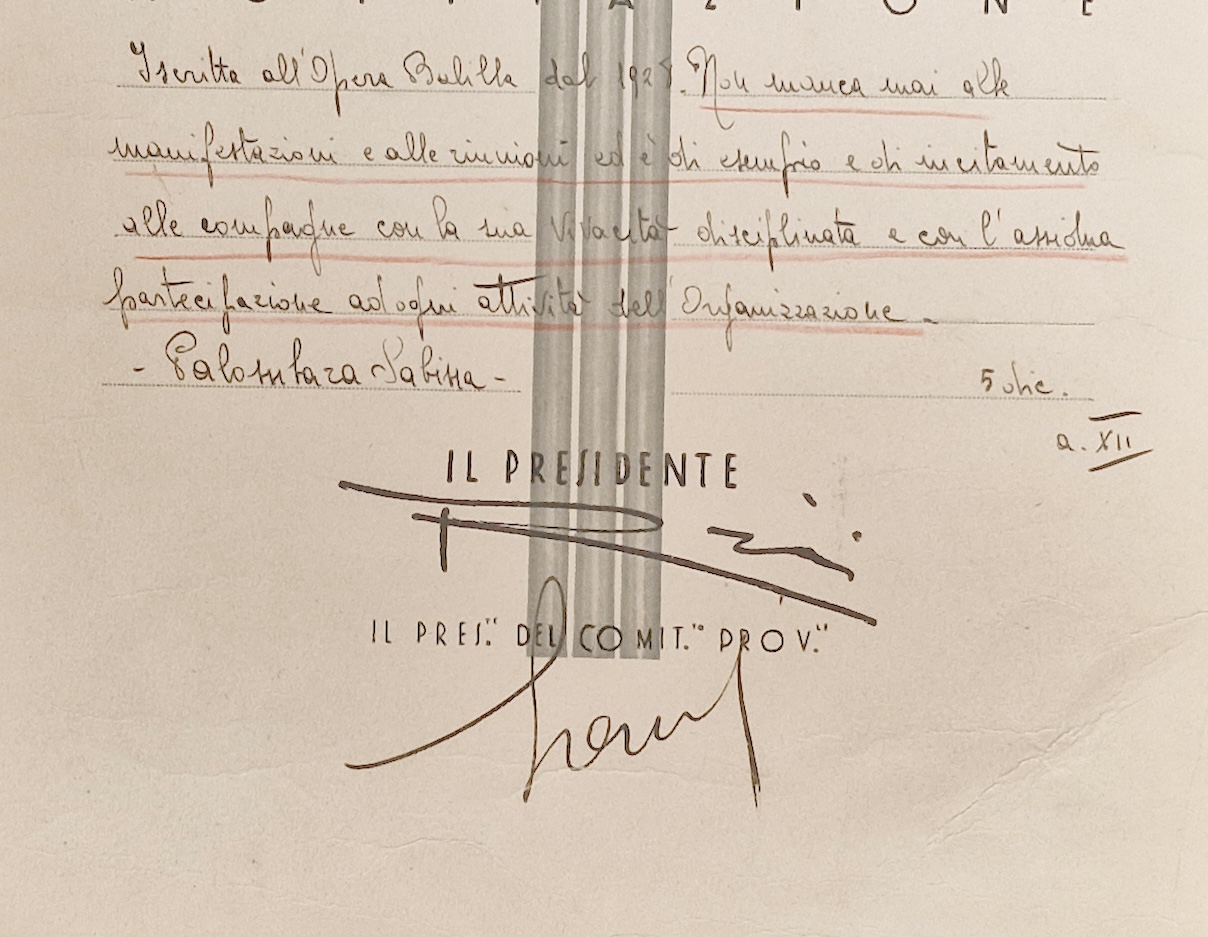 Iscritta all'Opera Balilla dal 1928. Non manca mai alle
manifestazioni e alle riunioni ed è di esempio e di incitamento
alle compagne con la sua vivacità disciplinata e con l'assidua
partecipazione ad ogni attività dell'Organizzazione.
- Palombara Sabina -
5 dic.
a. XII
IL PRESIDENTE
IL PRES.te DEL COMIT.to PROV.le